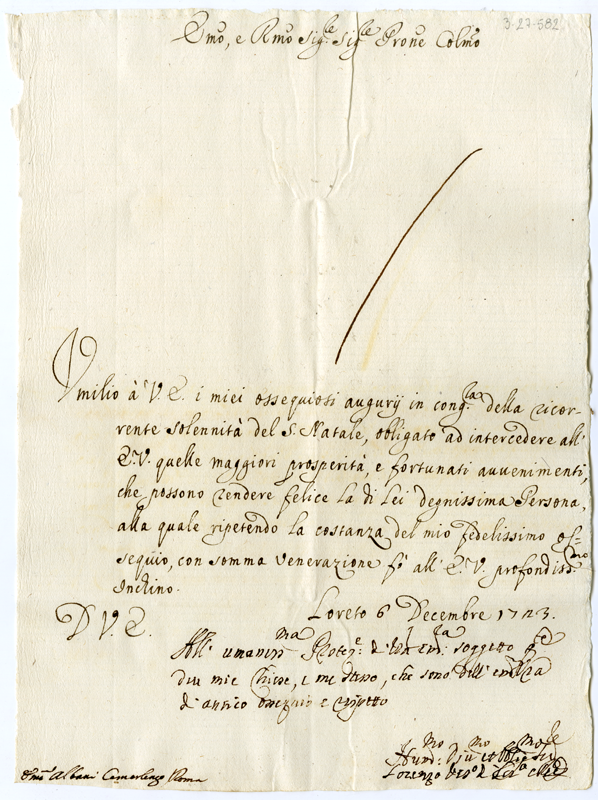 3-27-582
Emo, e Rmo Sig.re Sig.re Prone Colmo
Vmilio à V. E. i miei ossequiosi augurij in cong.za della ricor-
rente solennità del S. Natale, obligato ad intercedere all'
E. V. quelle maggiori prosperità, e fortunati auuenimenti,
che possono rendere felice la di Lei degnissima Persona,
alla quale ripetendo la costanza del mio fedelissimo os-
sequio, con somma venerazione fò all' E. V. profondiss.mo
Inchino.
Loreto 6 Decembre 1723.
D V. E.
All' umaniss.ma soggetto
due mie Chiese, e me stesso, che sono dell'
di antico e rispetto
Lorenzo
Emo Albani Camarlengo Roma